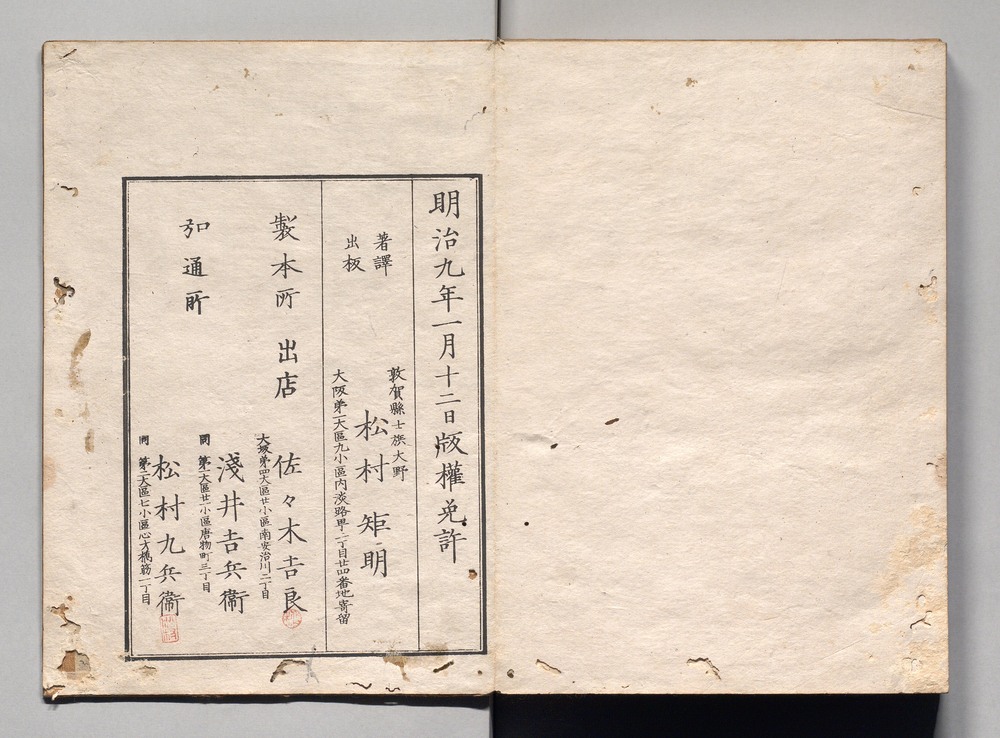 明治九年一月十二日版權免許
著譯
出板
敦賀縣士族大野
松村矩明
大阪第一大區九小區内淡路町二丁目廿四番地寄留
製本所 出店
佐々木吉良
大坂第四大區廿小區南安治川二丁目
弘通所
淺井吉兵衞
同 第一大區廿一小區唐物町三丁目
松村九兵衞
同 第二大區七小區心才橋筋一丁目